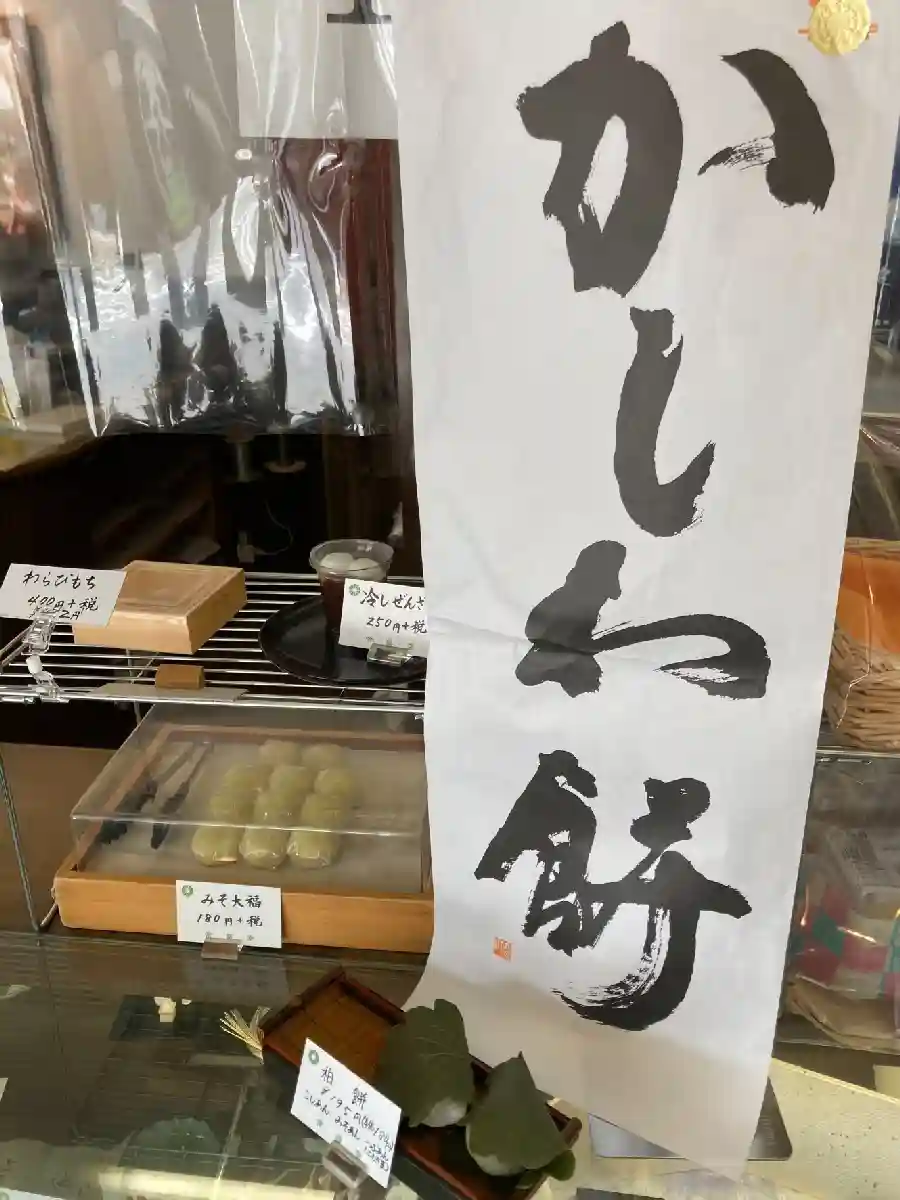 かしわ餅
わらびもち
400円+税
冷しぜんざ
250円+税
みそ大福
180円+税
柏餅
¥195円
こしあん みそあん